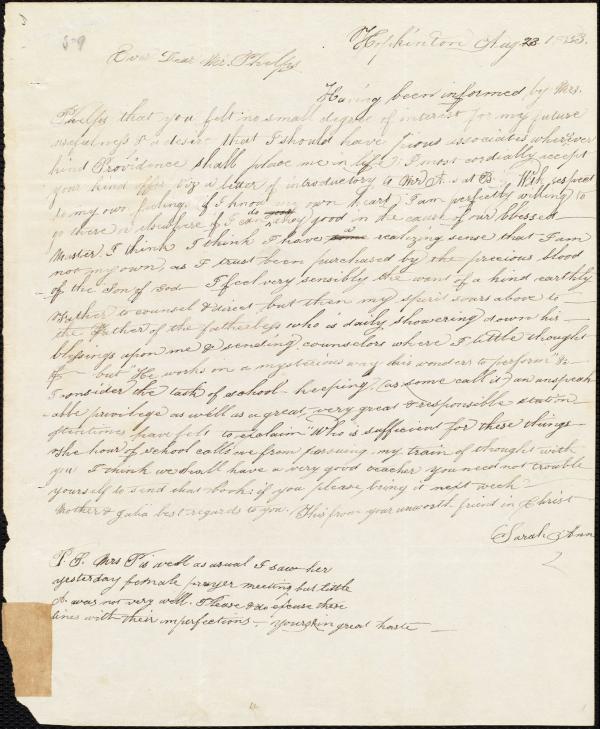 5-9
Hopkinton Aug 23 1833.
Ever Dear Mr. Phelps
Having been informed by Mrs.
Phelps that you felt no small degree of interest for my future
usefulness & a desire that I should have pious associates wherever
kind Providence shall place me in life; I most cordially accept
your kind offer viz a letter of introductory to Mr A. at B. With respect
to my own feelings if I know my own heart I am perfectly willing to
go there or elsewhere if I can do any good in the cause of our blessed
Master. I think I think I have a realizing sense that I am
not my own, as I trust been purchased by the precious blood
of the Son of God I feel very sensibly the want of a kind earthly
Father to counsel & direct but then my spirit soars above to
the Father of the fatherless who is daily showering down his
blessings upon me & sending counselors where I little thought
of but "He works in a mysterious way his wonders to perform" &c
I consider the task of school-keeping (as some call it) an unspeak-
able privilege as well as a great, very great & responsible station
oftentimes have felt to exclaim "Who is sufficient for these things
The hour of school calls me from pursuing my train of thought with
you I think we shall have a very good teacher you need not trouble
yourself to send that book if you please bring it next week
Mother & Julia best regards to you. This from your unworth friend in Christ
Sarah Ann
P.S. Mrs P is well as usual I saw her
yesterday female prayer meeting but little
A. was not very well. Please & do excuse these
lines with their imperfections - yours in great haste